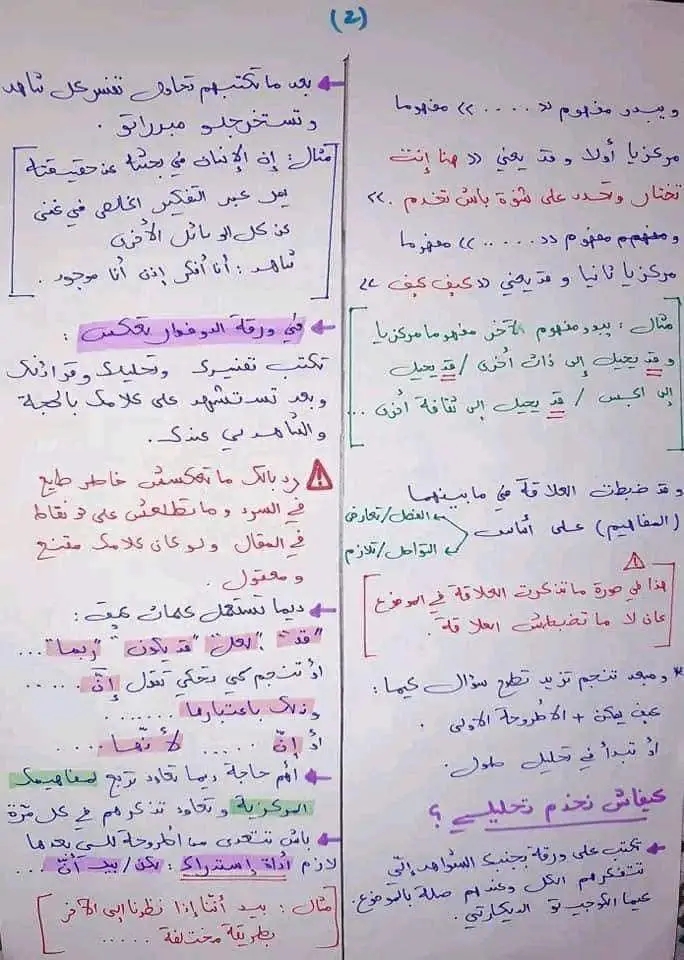 (2)
ويبدو مفهوم << .... >> مفهوما
مركزيا أولا وقد يعني << هنا إنت
تختار وتحدد على شوة باش تخدم >>.
ومفهوم << ..... >> مفهوما
مركزيا ثانيا وقد يعني << كيف كيف >>
مثال: يبدو مفهوم الآخر مفهوما مركزيا
و قد يحيل إلى ذات أخرى / قد يحيل
إلى الجسس / قد يحيل إلى ثقافة أخرى ...
وقد ضبطت العلاقة في ما بينهما
(المفاهيم) على أساس
الفصل/تعارض
التواصل/تلازم
هذا في صورة ما تذكرت العلاقة في الموضوع
كان لا ما تضبطش العلاقة.
* ومبعد تنجم تزيد تطرح سؤال كيما:
كيف يمكن + الأطروحة الأولى.
أو تبدأ في تحليل طول.
كيفاش نخدم تحليلي؟
تكتب على ورقة بجنبك الشواهد إلّي
تتفكرهم الكل وعندهم صلة بالموضوع.
كيما الكوجيتو الديكارتي.
بعد ما تكتبهم تحاول تفسر كل شاهد
وتستخرجلو مبرراتو.
مثال: إن الإنسان في بحثه عن حقيقته
يمر عبر التفكير الخالص في غنى
عن كل الوسائل الأخرى
شاهد: أنا أفكر إذن أنا موجود.
في ورقة الدوفوار تعكس:
تكتب تفسيرك وتحليلك وقرائنك
وبعد تستشهد على كلامك بالحجة
والشاهد لي عندك.
رد بالك ما تعكسش خاطر طايح
في السرد وما تطلعش على 3 نقاط
في المقال ولو كان كلامك مقنع
ومعقول.
ديما تستعمل كلمات كيف:
"قد" "لعل" "قد يكون" "ربما" ...
أو تنجم كي تحكي تقول إنّ .....
وذلك باعتبارها .......
أو إنّ ..... لأنّها ....
أهم حاجة ديما تعاود ترجع لمفاهيمك
المركزية وتعاود تذكرهم في كل مرة
باش تتعدى من أطروحة للي بعدها
لازم أداة إستدراك: لكن/بيد أنّ ...
مثال: بيد أننا إذا نظرنا إلى الآخر
بطريقة مختلفة .....